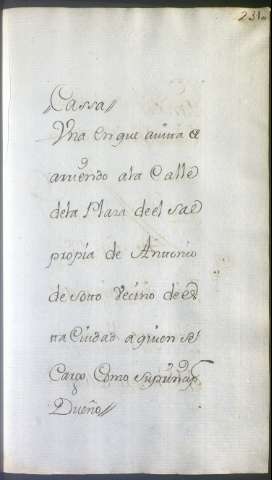 231
//Cassa//
Vna en que auita e
arriendo a la Calle
dela Plaza de el Sae
propia de Anttonio
de sotto Vecino de es
tta Ciudad a quien se
Cargo Como su prinᵖ
Dueño//